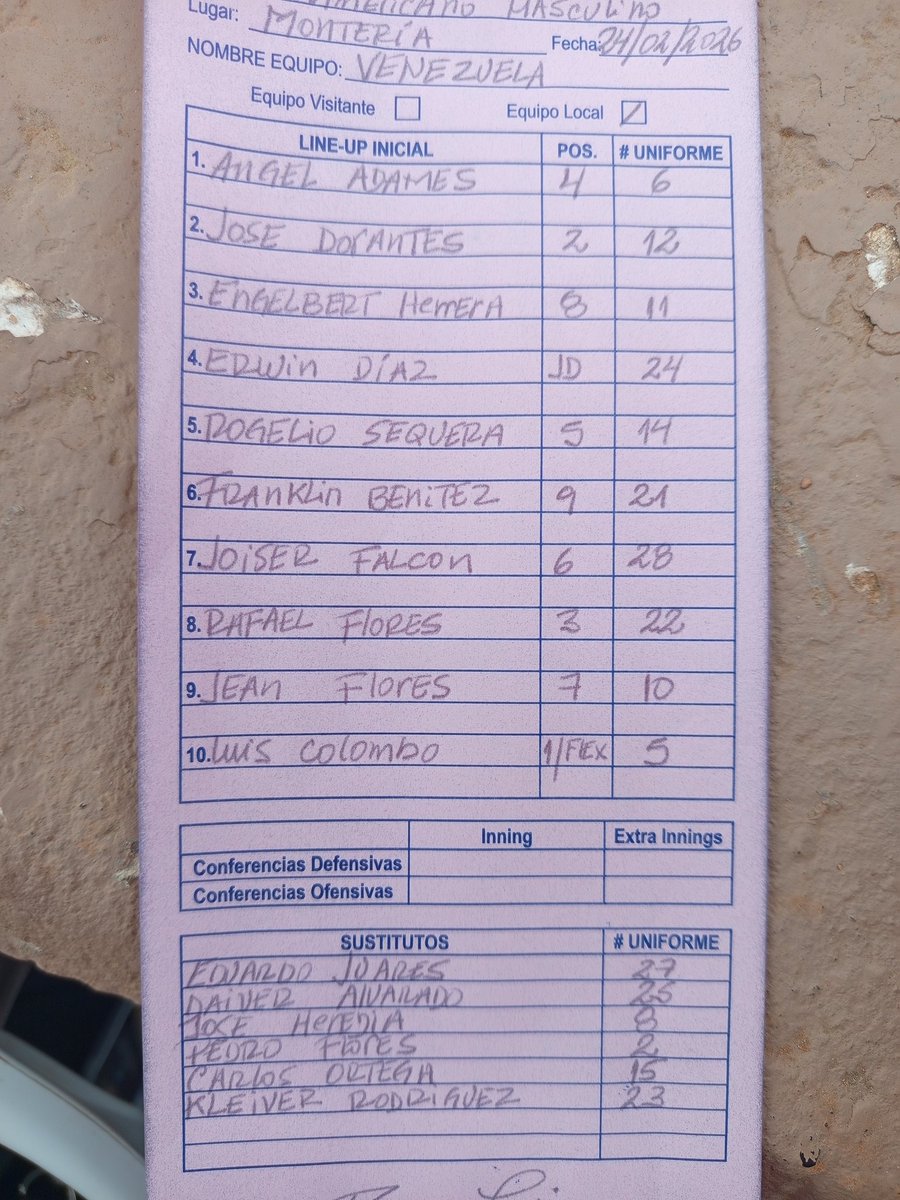 AMERICANO MASCULINO
Lugar: MONTERÍA Fecha: 24/02/2026
NOMBRE EQUIPO: VENEZUELA
Equipo Visitante Equipo Local
LINE-UP INICIAL POS. # UNIFORME
1. ANGEL ADAMES 4 6
2. JOSE DORANTES 2 12
3. ENGELBERT HERRERA 8 11
4. ERWIN DÍAZ JD 24
5. ROGELIO SEQUERA 5 14
6. FRANKLIN BENITEZ 9 21
7. JOISER FALCON 6 28
8. RAFAEL FLORES 3 22
9. JEAN FLORES 7 10
10. LUIS COLOMBO 1/FLEX 5
Inning Extra Innings
Conferencias Defensivas
Conferencias Ofensivas
SUSTITUTOS # UNIFORME
EDUARDO JUARES 27
DAIVER ALVARADO 25
JOSE HEREDIA 8
PEDRO FLORES 2
CARLOS ORTEGA 15
KLEIVER RODRIGUEZ 23